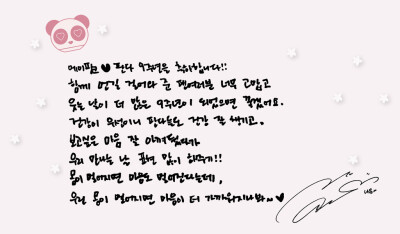 에이핑크 ♥ 판다 9주년을 축하합니다!!
함께 먼길 걸어와 준 팬여러분 너무 고맙고
웃는 날이 더 많은 9주년이 되었으면 좋겠어요.
건강이 우선이니 판다들도 건강 잘 챙기고,
보고싶은 마음 잘 아껴뒀다가
우리 만나는 날 표현 많이 해주기!!
몸이 멀어지면 마음도 멀어진다는데,
우린 몸이 멀어지면 마음이 더 가까워지나봐~♥